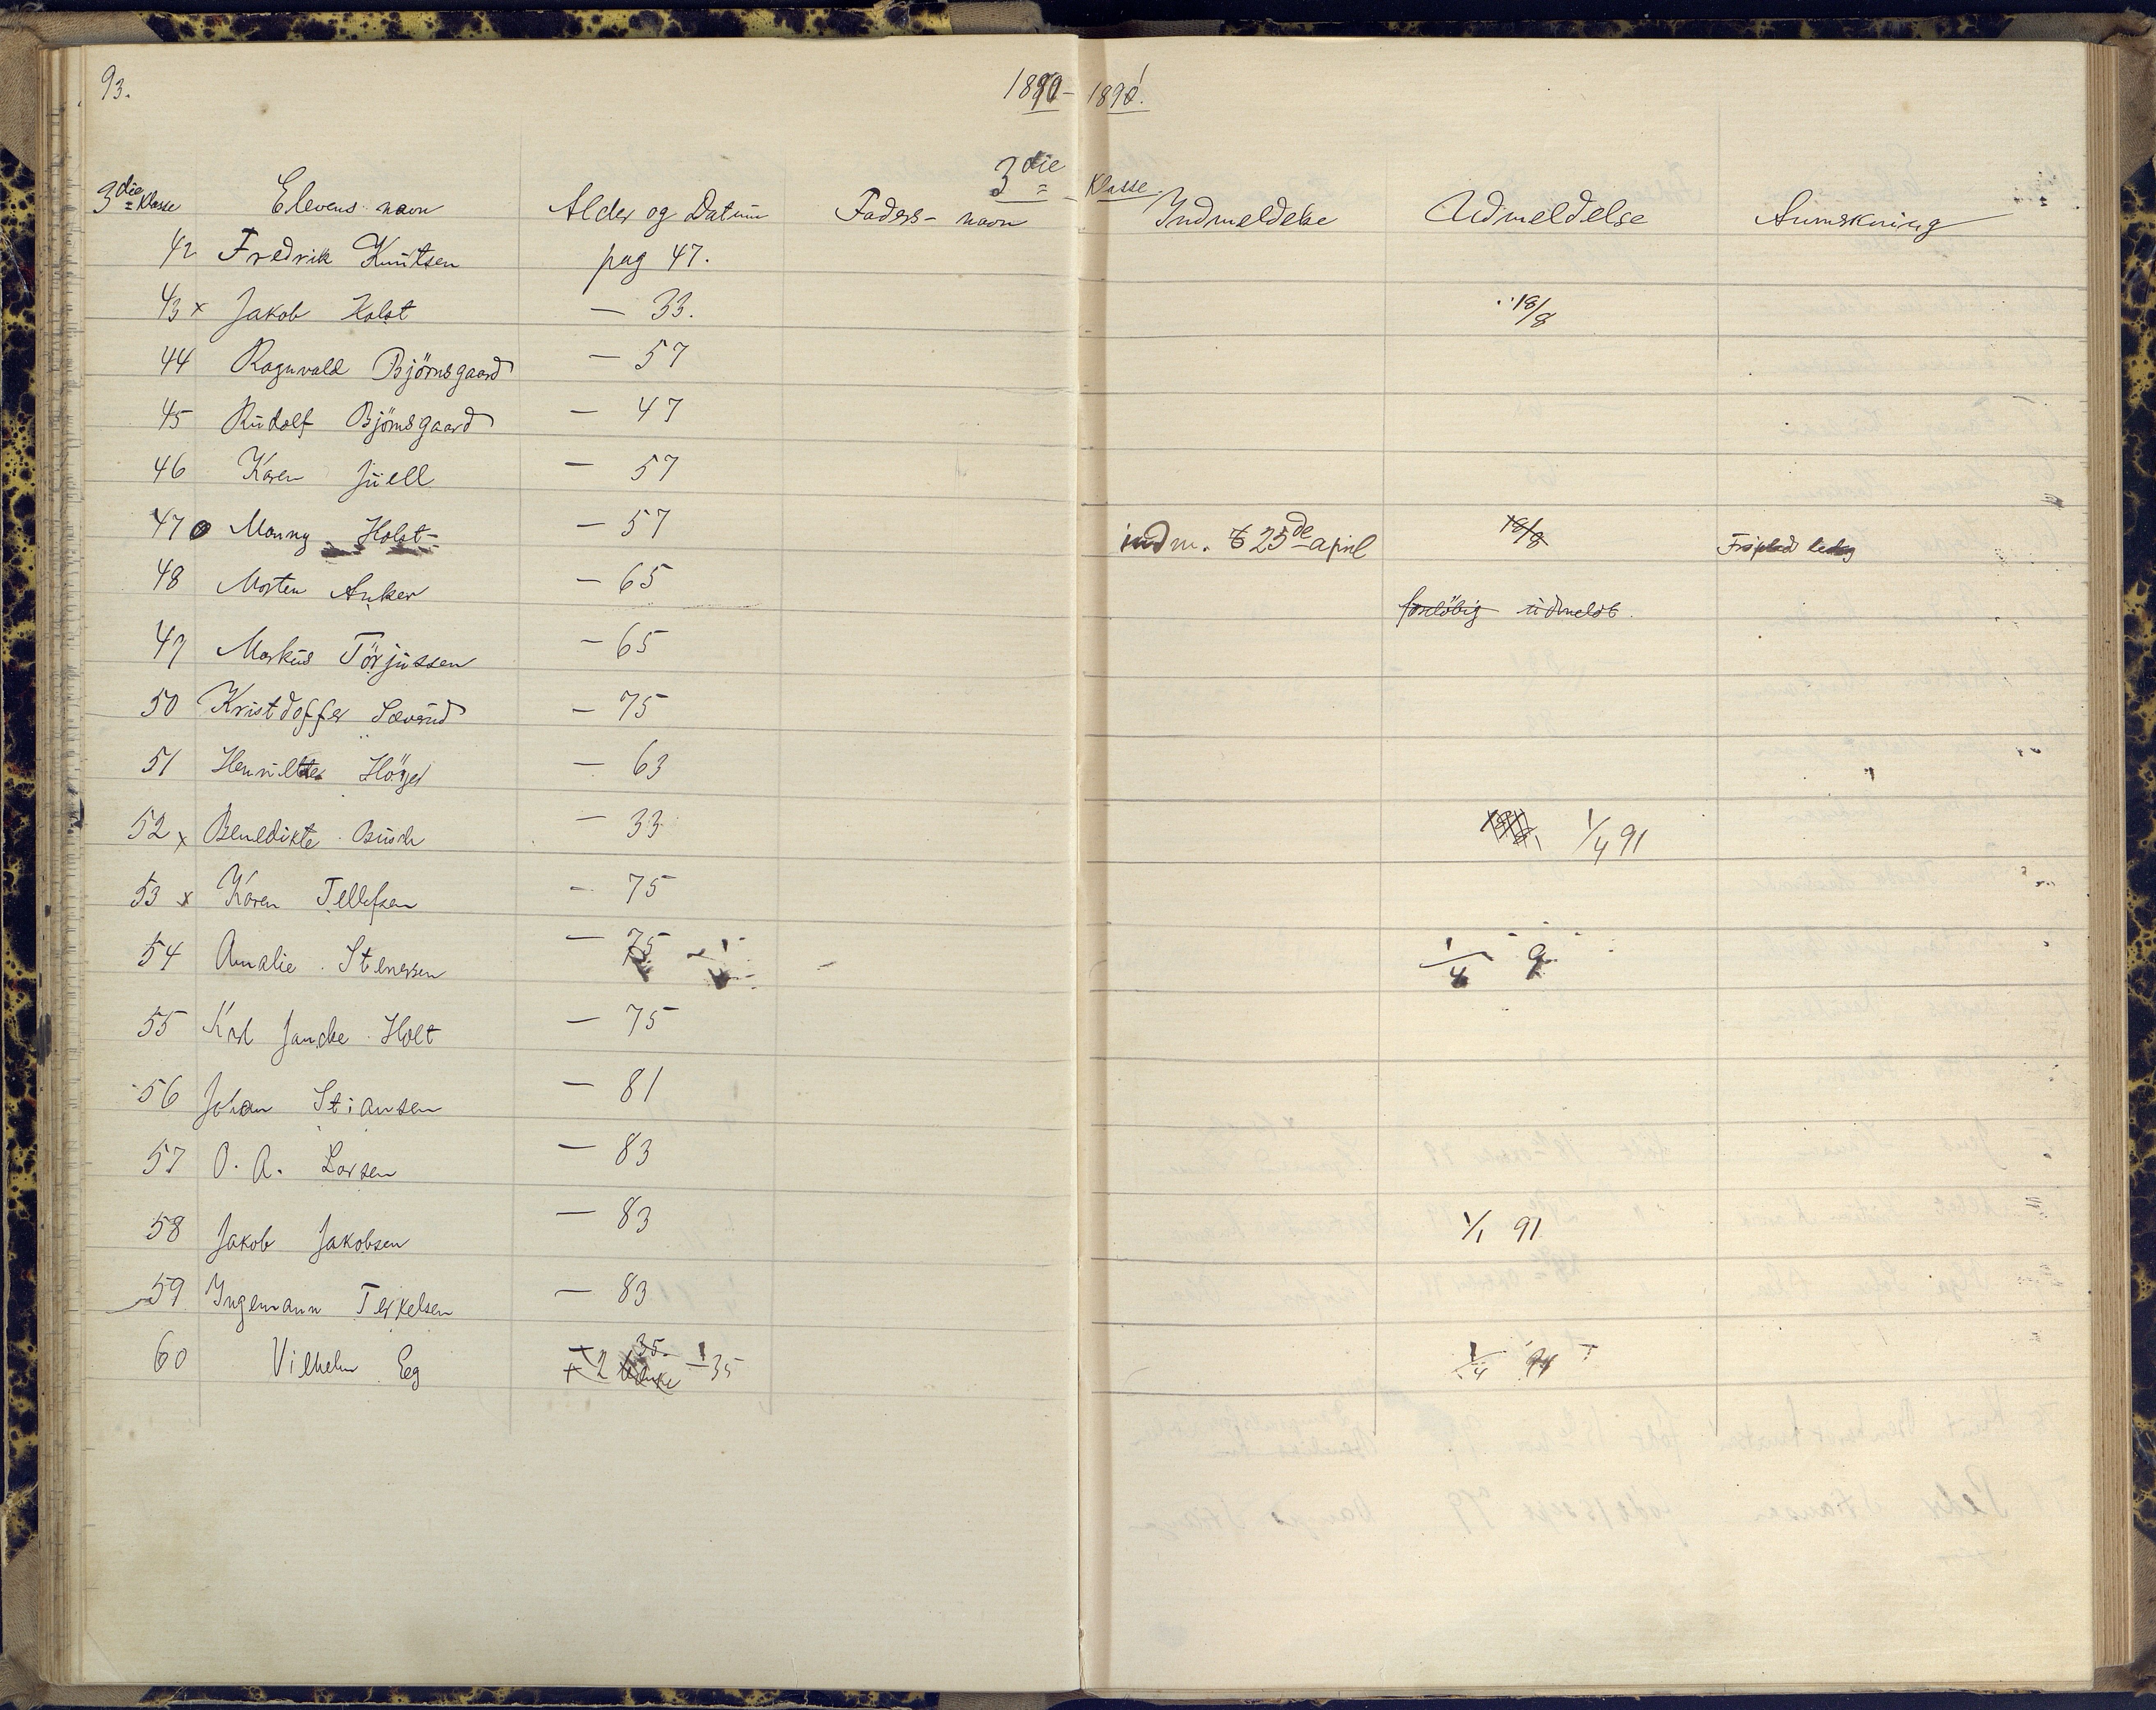 93.
1890- 1891.
3die Klasse.
3die Klasse Elevens navn Alder og Datum Faders-navn Indmeldelse Udmeldelse Anmerkning
42 Fredrik Knutsen pag 47.
43 x Jakob Holst — 33. 18/8
44 Ragnvald Björnsgaard — 57
45 Rudolf Björnsgaard — 47
46 Karen Juell — 57
47 Manny Holst — 57 indm. 25de april 18/8 Friplads ledig
48 Morten Anker — 65 foreløbig udmeldt.
49 Markus Törjussen — 65
50 Kristdoffer Sævrud — 75
51 Höyer — 63
52 x Benedikte Busch — 33 1/4 91
53 x Karen Tellefsen — 75
54 Amalie Stenersen — 75 1/4 9
55 Karl Jancke Holt — 75
56 Johan Stiansen — 81
57 O. A. Larsen — 83
58 Jakob Jakobsen — 83 1/1 91
59 Ingemann Terkelsen — 83
60 Vilhelm Eeg 35 1/4 91